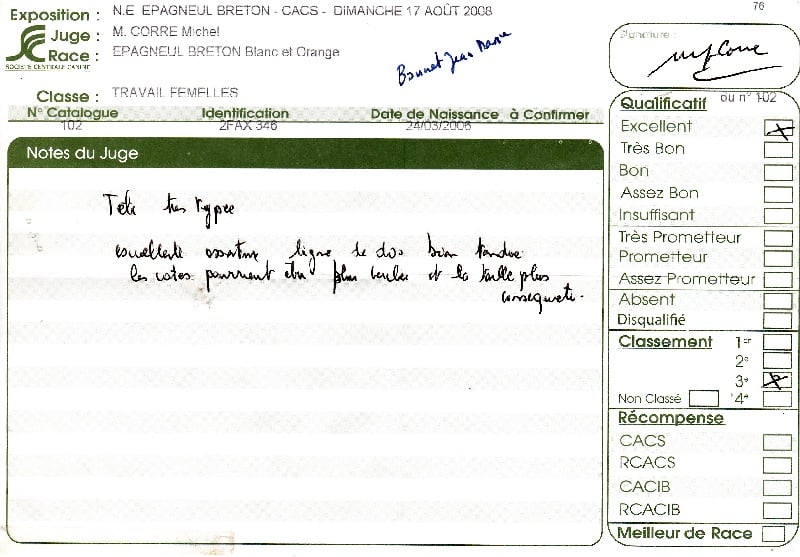 76
Exposition : N.E. EPAGNEUL BRETON - CACS - DIMANCHE 17 AOÛT 2008
Juge : M. CORRE Michel
Race : EPAGNEUL BRETON Blanc et Orange
SOCIÉTÉ CENTRALE CANINE
Bonnet Jean Marie
Classe : TRAVAIL FEMELLES
N° Catalogue Identification Date de Naissance à Confirmer
102 2FAX 346 24/03/2006
Notes du Juge
Tête très typée
excellente ossature ligne de dos bien tendue
les côtes pourraient être plus et la taille plus
conséquente.
Signature :
ou n° 102
Qualificatif
Excellent X
Très Bon
Bon
Assez Bon
Insuffisant
Très Prometteur
Prometteur
Assez Prometteur
Absent
Disqualifié
Classement 1er
2e
3e X
Non Classé 4e
Récompense
CACS
RCACS
CACIB
RCACIB
Meilleur de Race